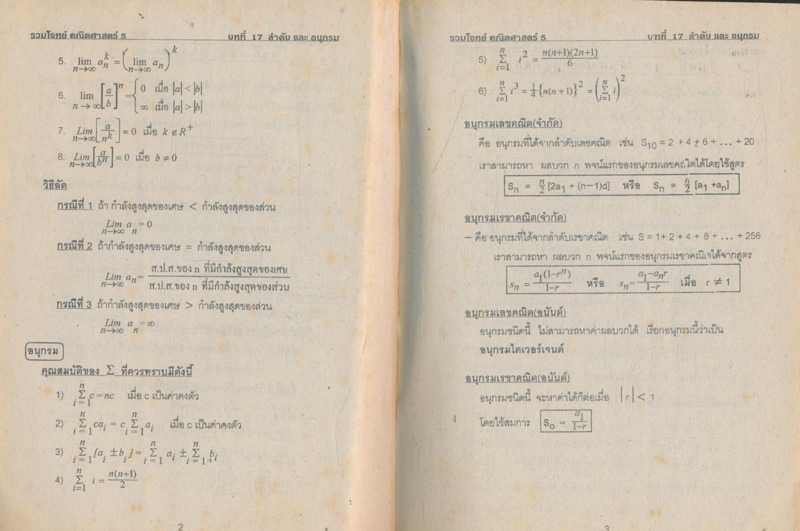 รวมโจทย์ คณิตศาสตร์ 5 บทที่ 17 ลำดับ และ อนุกรม
5. lim n→∞ a_n^k = (lim n→∞ a_n)^k
6. lim n→∞ [a/b]^n = { 0 เมื่อ |a| < |b|
∞ เมื่อ |a| > |b|
7. Lim n→∞ [a/n^k] = 0 เมื่อ k ∈ R^+
8. Lim n→∞ [a/b^n] = 0 เมื่อ b ≠ 0
วิธีลัด
กรณีที่ 1 ถ้า กำลังสูงสุดของเศษ < กำลังสูงสุดของส่วน
Lim n→∞ a_n = 0
กรณีที่ 2 ถ้ากำลังสูงสุดของเศษ = กำลังสูงสุดของส่วน
Lim n→∞ a_n = ส.ป.ส.ของ n ที่มีกำลังสูงสุดของเศษ / ส.ป.ส.ของ n ที่มีกำลังสูงสุดของส่วน
กรณีที่ 3 ถ้ากำลังสูงสุดของเศษ > กำลังสูงสุดของส่วน
Lim n→∞ a_n = ∞
อนุกรม
คุณสมบัติของ Σ ที่ควรทราบมีดังนี้
1) Σ_{i=1}^{n} c = nc เมื่อ c เป็นค่าคงตัว
2) Σ_{i=1}^{n} ca_i = c Σ_{i=1}^{n} a_i เมื่อ c เป็นค่าคงตัว
3) Σ_{i=1}^{n} [a_i ± b_i] = Σ_{i=1}^{n} a_i ± Σ_{i=1}^{n} b_i
4) Σ_{i=1}^{n} i = n(n+1)/2
2
รวมโจทย์ คณิตศาสตร์ 5 บทที่ 17 ลำดับ และ อนุกรม
5) Σ_{i=1}^{n} i^2 = n(n+1)(2n+1)/6
6) Σ_{i=1}^{n} i^3 = 1/4 {n(n+1)}^2 = (Σ_{i=1}^{n} i)^2
อนุกรมเลขคณิต(จำกัด)
คือ อนุกรมที่ได้จากลำดับเลขคณิต เช่น S_10 = 2 + 4 + 6 + ... + 20
เราสามารถหา ผลบวก n พจน์แรกของอนุกรมเลขคณิตได้โดยใช้สูตร
S_n = n/2 [2a_1 + (n−1)d] หรือ S_n = n/2 [a_1 + a_n]
อนุกรมเรขาคณิต(จำกัด)
– คือ อนุกรมที่ได้จากลำดับเรขาคณิต เช่น S = 1 + 2 + 4 + 8 + ... + 256
เราสามารถหา ผลบวก n พจน์แรกของอนุกรมเรขาคณิตได้จากสูตร
s_n = a_1(1−r^n)/1−r หรือ s_n = a_1−a_n r/1−r เมื่อ r ≠ 1
อนุกรมเลขคณิต(อนันต์)
อนุกรมชนิดนี้ ไม่สามารถหาค่าผลบวกได้ เรียกอนุกรมนี้ว่าเป็น
อนุกรมไดเวอร์เจนต์
อนุกรมเรขาคณิต(อนันต์)
อนุกรมชนิดนี้ จะหาค่าได้ก็ต่อเมื่อ |r| < 1
โดยใช้สมการ S_o = a_1/1−r
3